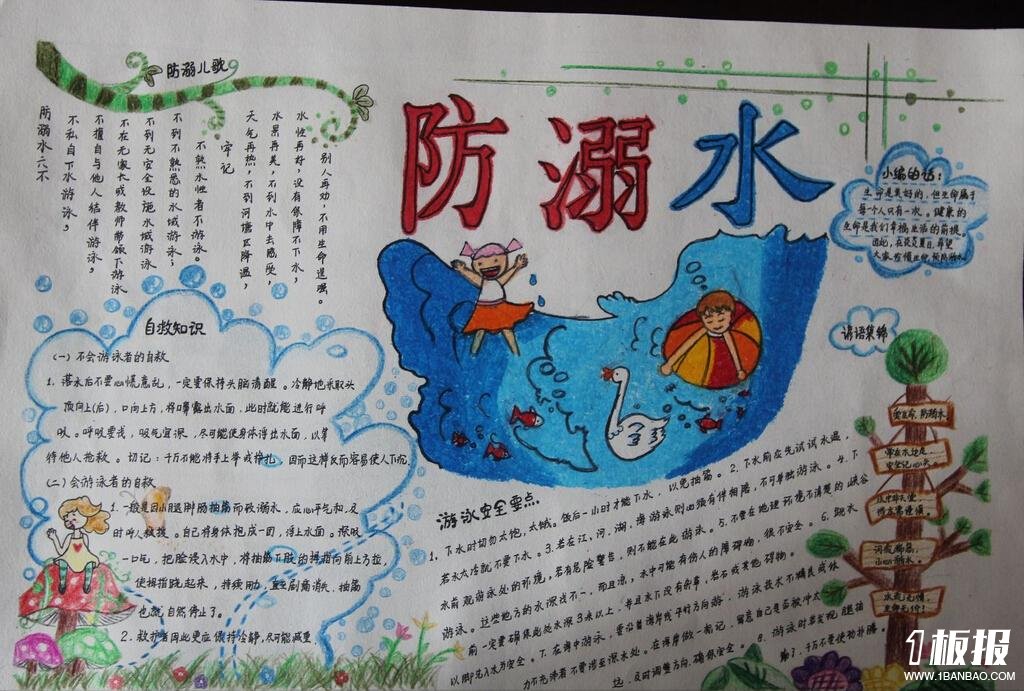 防溺儿歌
别人再劝，不用生命逞强。
水性再好，没有保障不下水，
水果再美，不到水中去感受，
天气再热，不到河塘区降温，
牢记
不熟水性者不游泳。
不到不熟悉的水域游泳；
不到无安全设施水域游泳
不在无家长或教师带领下游泳
不擅自与他人结伴游泳，
不私自下水游泳，
防溺水六不
防溺水
小编的话：
生命是美好的，但生命属于
每个人只有一次。健康的
生命是我们幸福生活的前提。
因此，在炎炎夏日，希望
自救知识
（一）不会游泳者的自救
1．落水后不要心慌意乱，一定要保持头脑清醒。冷静地采取头
顶向上(后)，口向上方，将口鼻露出水面，此时就能进行呼
吸。呼吸要浅，吸气宜深，尽可能使身体浮出水面，以等
待他人抢救。切记：千万不能将手上举或挣扎，因而这样反而容易使人下沉
（二）会游泳者的自救
1．一般是因小腿脚肠抽筋而致溺水，应心平气和，及
时呼人救援。自己将身体抱成一团，浮上水面。深吸
一口气，把脸浸入水中，将抽筋下肢的拇指向前上方拉，
使拇指跷起来，持续用力，直至剧痛消失，抽筋
也就自然停止了。
2．救护者因此更应保持冷静，尽可能减重
谚语集锦
爱生命，防溺水
游泳安全要点
1．下水时切勿太饱，太饿。饭后一小时才能下水，以免抽筋。2．下水前应先试试水温，
若水太冷就不要下水。3．若在江，河，湖，海游泳则必须有伴相陪，不可单独游泳。4．下
水前观游泳处的环境，若有危险警告，则不能在此游泳。5．不要在地理环境不清楚的峡谷
游泳。这些地方的水深浅不一，而且凉，水中可能有伤人的障碍物，很不安全。6．跳水
前一定要确保此处水深3米以上，并且水下没有杂草，岩石或其他障碍物。
以脚先入水为安全。7．在海中游泳，要沿着海岸线平行方向游，游泳技术不精良或体
力不充沛者不要涉至深水处。在海岸做一标记，留意自己是否被冲太
远，及时调整方向，确保安全。8．游泳时若发现腿抽
筋了，千万不要
1板报
WWW.1BANBAO.COM